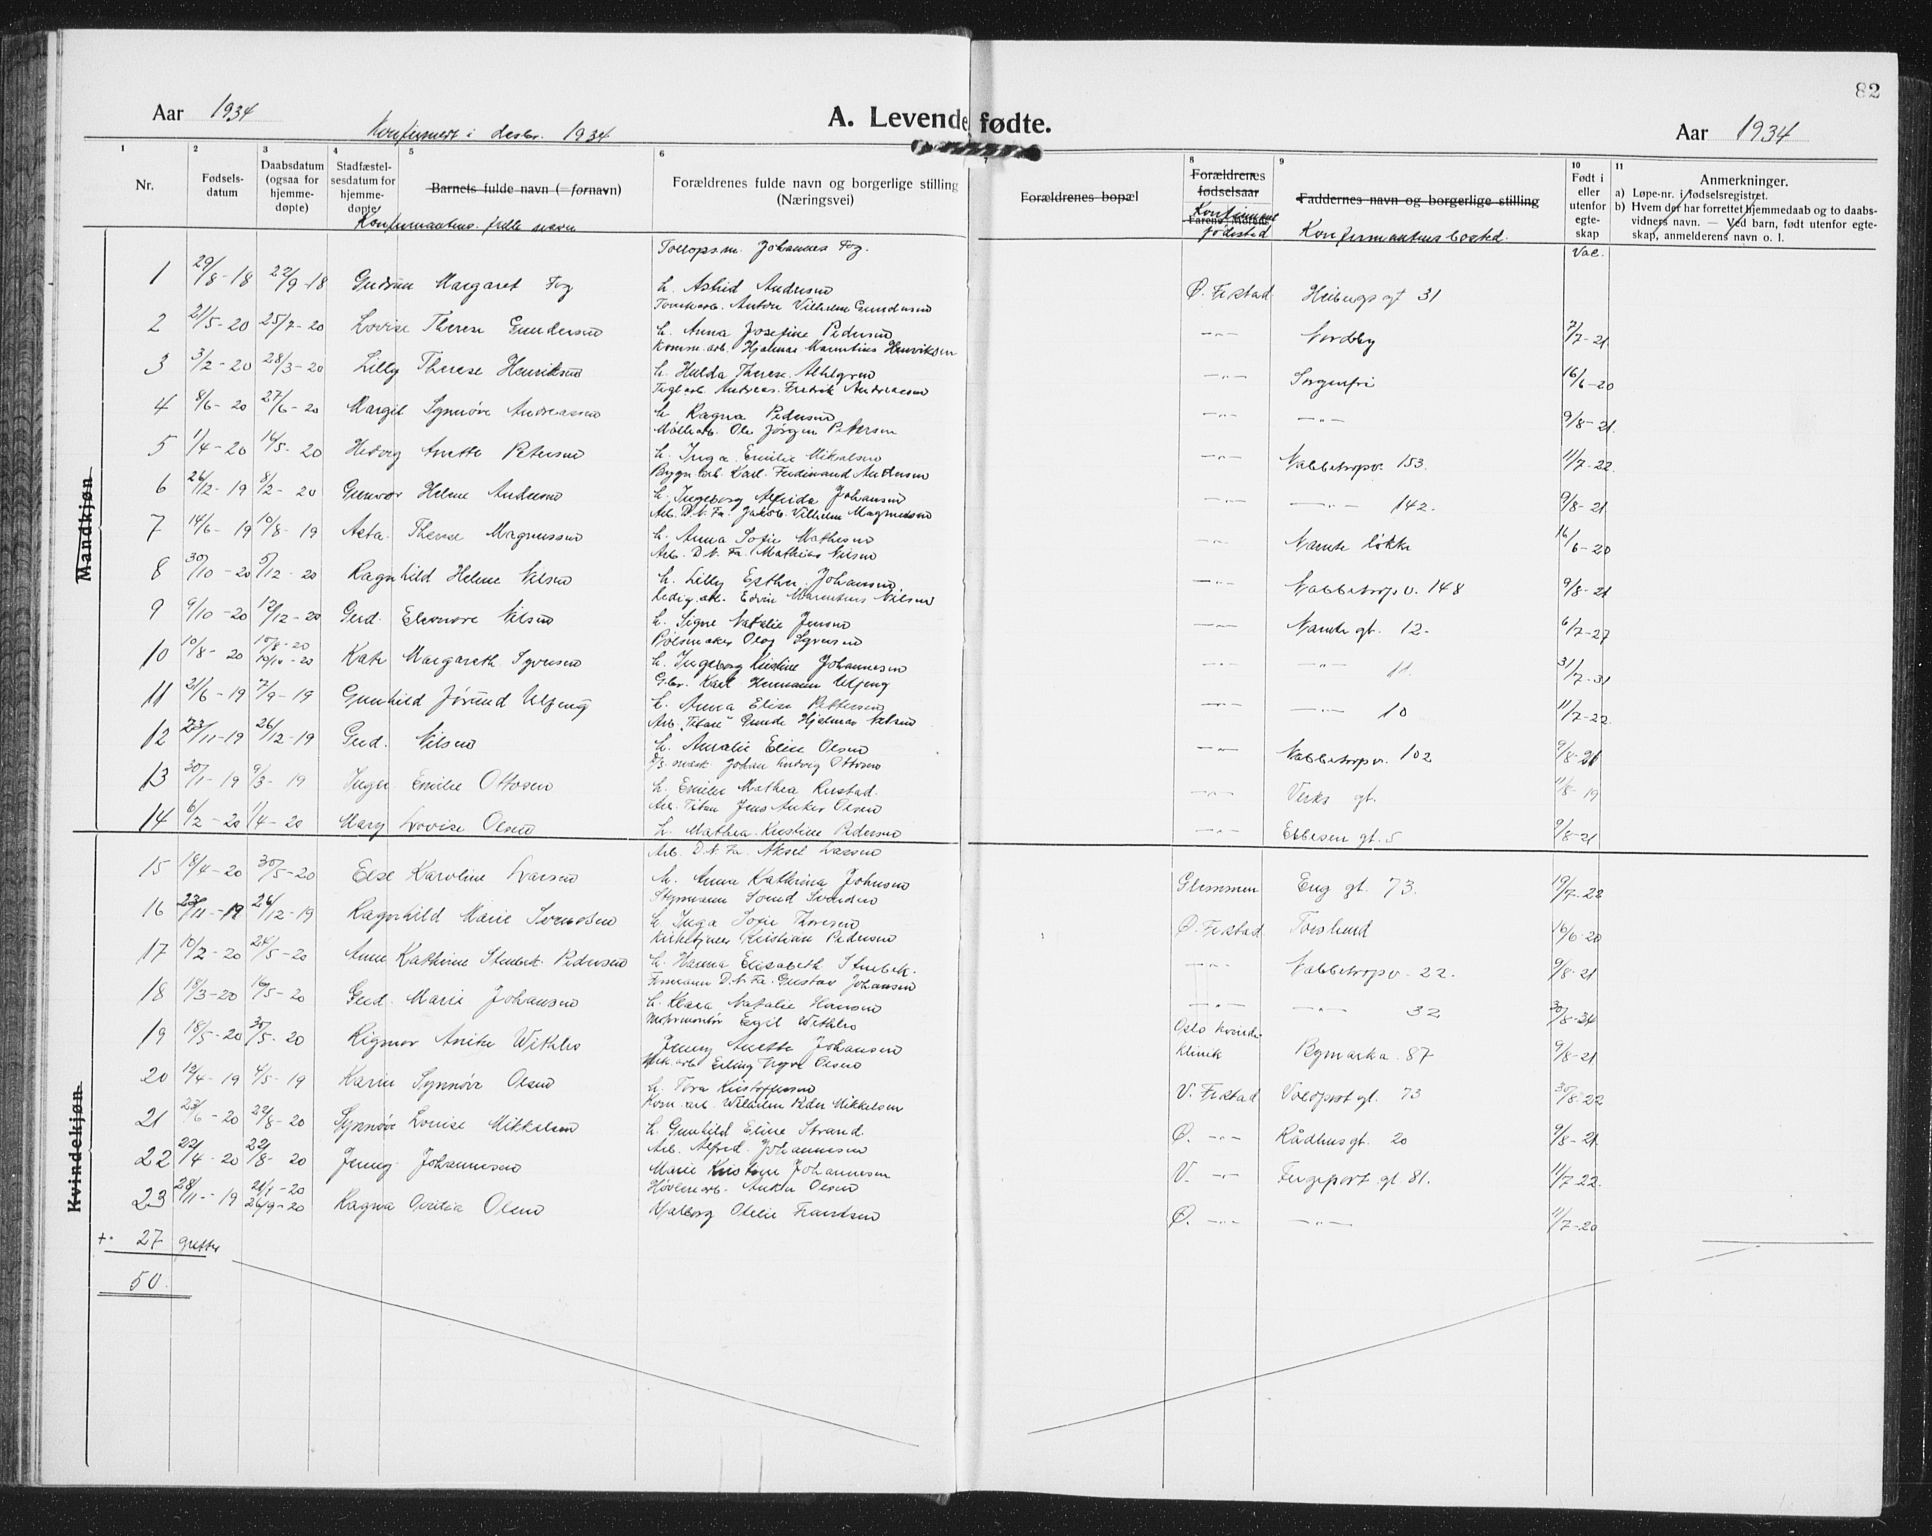 82
Aar 1934
Konfirmert i desbr. 1934
A. Levende fødte.
Aar 1934
1 2 3 4 5 6 7 8 9 10 11
Nr.
Fødsels-
datum
Daabsdatum
(ogsaa for
hjemme-
døpte)
Stadfæstel-
sesdatum for
hjemme-
døpte
Barnets fulde navn (= fornavn)
Konfirmantens fulle navn
Forældrenes fulde navn og borgerlige stilling
(Næringsvei)
Forældrenes bopæl
Forældrenes
fødselsaar
Konfirmant
fødested
Faddernes navn og borgerlige stilling
Konfirmantens bosted.
Født i
eller
utenfor
egte-
skap
Vac.
Anmerkninger.
a) Løpe-nr. i fødselsregistret.
b) Hvem der har forrettet hjemmedaab og to daabs-
vidners navn. — Ved barn, født utenfor egte-
skap, anmelderens navn o. l.
Mandkjøn
Tollopsm. Johannes Fog.
1 29/8-18 22/9-18 Gudrun Margaret Fog h. Astrid Andersen Ø. Frstad Heibergs gt 31
Tomtearb. Anton Vilhelm Gundersen
2 21/5-20 25/7-20 Lovise Therese Gundersen h. Anna Josefine Pedersen -"- Nordby 7/7-21
Komm. arb. Hjalmar Marentius Henriksen
3 3/2-20 28/3-20 Lilly Therese Henriksen h. Hulda Therese Ahlgren -"- Sorgenfri 16/6-20
Teglarb. Andreas Fredrik Andreassen
4 8/6-20 27/6-20 Margit Synnøve Andreassen h. Ragna Pedersen -"- -"- 9/8-21
Møllearb. Ole Jørgen Petersen
5 1/4-20 14/5-20 Hedvig Anette Petersen h. Inga Emilie Mikalsen -"- Nabbetorpv. 153. 11/7-22
Bygn. arb. Karl Ferdinand Andersen
6 26/12-19 8/2-20 Gunvor Helene Andersen h. Ingeborg Alfrida Johansen -"- -"- 142. 9/8-21
Arb. D.N.Fa. Jakob Vilhelm Magnussen
7 14/6-19 10/8-19 Asta Therese Magnussen h. Anna Sofie Mathesen -"- Narnte løkke 16/6-20
Arb. D.N.Fa. Mathias Nilsen
8 30/10-20 5/12-20 Ragnhild Helene Nilsen h. Lilly Esther Johansen. -"- Nabbetorpv. 148 9/8-21
Ledig. arb. Edvin Marentius Nilsen
9 9/10-20 12/12-20 Gerd Eleonore Nilsen h. Signe Natalie Jensen -"- Narnte gt. 12. 6/7-27
Pølsemaker Olag Syversen
10 10/8-20 10/8-20 10/10-20 Kate Margareth Syversen h. Ingeborg Kristine Johannesen -"- -"- 11. 31/7-31
Gbr. Karl Hermann Ulfeng
11 21/6-19 7/9-19 Gunhild Jørund Ulfeng h. Anna Elise Pettersen -"- -"- 10 11/7-22
Arb. "Titan" Gunde Hjalmar Nilsen
12 23/11-19 26/12-19 Gerd Nilsen h. Amalie Elise Olsen -"- Nabbetorpv. 102 9/8-21
Johan Ludvig Ottosen
13 30/1-19 9/3-19 Inger Emilie Ottosen h. Emilie Mathea Rustad. -"- Verks gt. 11/8-19
Arb. Titan Jens Anker Olsen
14 6/2-20 1/4-20 Mary Lovise Olsen h. Mathea Kristine Pedersen -"- Ebbesen gt. 5 9/8-21
Arb. D.N.Fa. Aksel Larsen
15 18/4-20 30/5-20 Else Karoline Larsen h. Anna Kathrina Johnsen Glemmen Eng gt. 73. 19/7-22
Styrmann Svend Svendsen
16 23/11-19 26/12-19 Ragnhild Marie Svendsen h. Inga Sofie Thoresen Ø. Frstad Torslund 16/6-20
Kirketjener Kristian Pedersen
17 10/2-20 24/5-20 Anne Kathrine Stenbek Pedersen h. Hanna Elisabeth Stenbek. -"- Nabbetorpv. 22. 9/8-21
Formann D.N.Fa. Gustav Johansen
18 18/3-20 16/5-20 Gerd Marie Johansen h. Klara Natalie Hansen -"- -"- 32 30/8-34
Motormontør Egil Wethles
19 18/5-20 30/5-20 Rigmor Anita Wethles Jenny Anette Johansen Oslo kvinde- klinik Bymarka. 87 9/8-21
Mek. arb. Erling Yngve Olsen
20 12/4-19 4/5-19 Karin Synnøve Olsen h. Tora Kristoffersen V. Frstad Voldport gt. 73 30/8-22
Kom. arb. Wilhelm Peder Mikkelsen
21 23/6-20 22/8-20 Synnøve Louise Mikkelsen h. Gunhild Eline Strand. Ø. -"- Rådhusgt. 20 9/8-21
Arb. Alfred Johannesen
22 22/4-20 22/8-20 Jenny Johannesen Marie Kristine Johannesen V. -"- Fergeport gt. 81. 11/7-22.
Høvleriarb. Anton Olsen
23 28/11-19 21/1-20 26/9-20 Ragna Cecilia Olsen Valborg Otelie Frantsen Ø. -"- -"- 11/7-20
Kvindekjøn
+ 27 gutter
50.